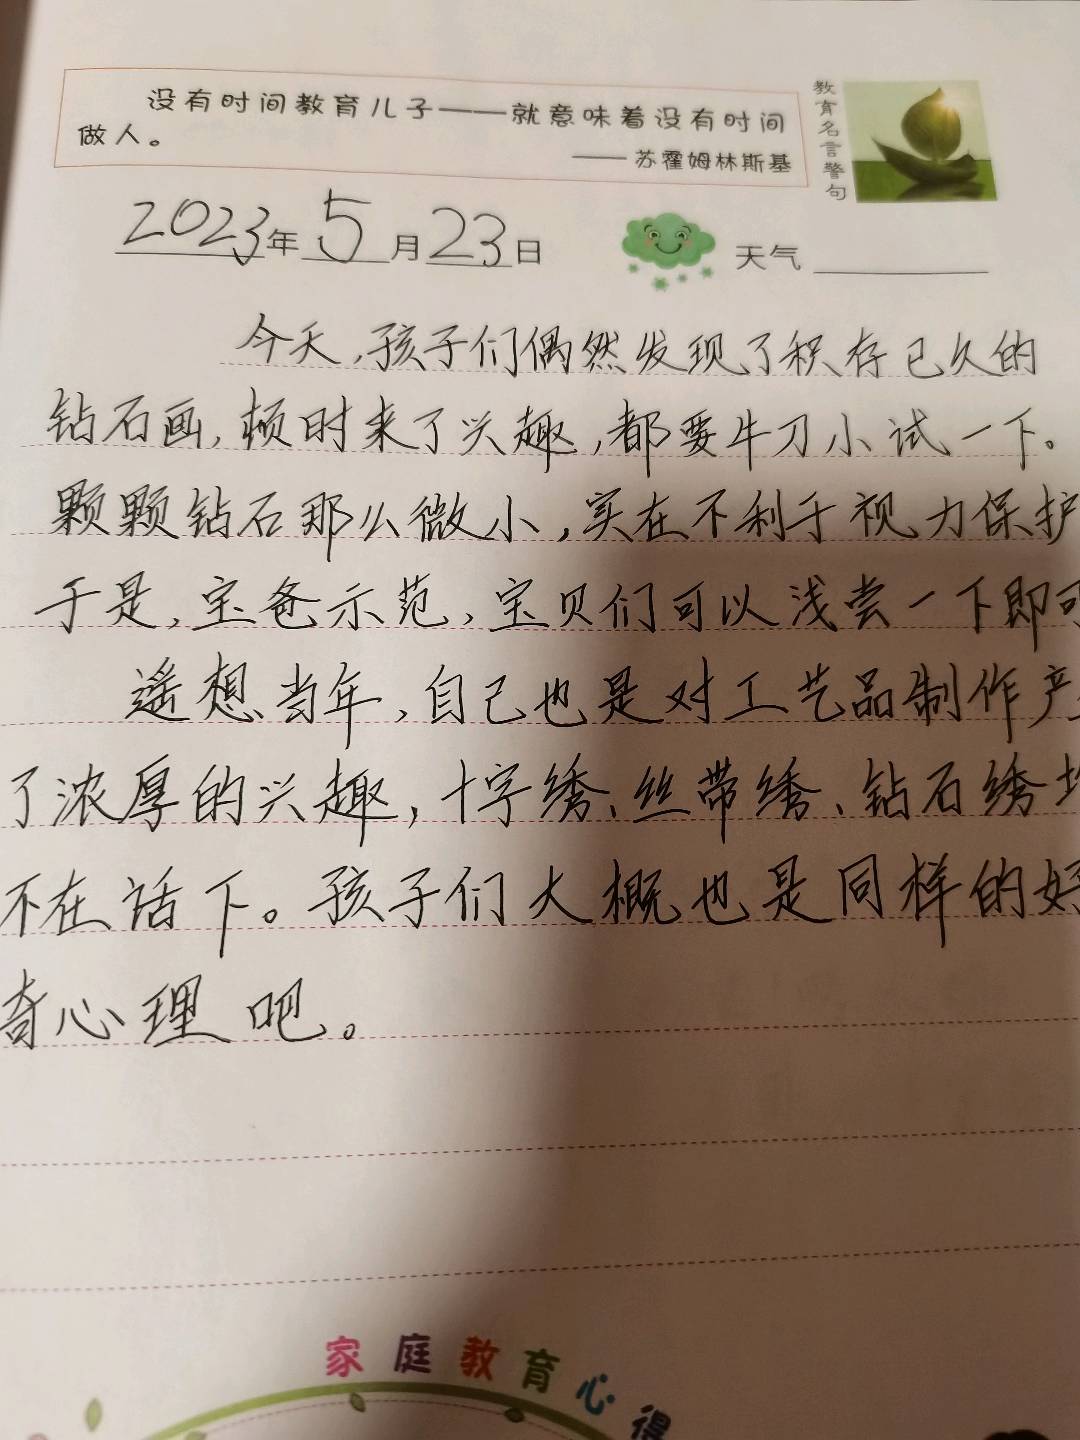 没有时间教育儿子——就意味着没有时间
做人。
——苏霍姆林斯基
教育名言警句
2023年5月23日
天气
今天,孩子们偶然发现了积存已久的
钻石画,顿时来了兴趣,都要牛刀小试一下。
颗颗钻石那么微小,实在不利于视力保护
于是,宝爸示范,宝贝们可以浅尝一下即可
遥想当年,自己也是对工艺品制作产
了浓厚的兴趣,十字绣、丝带绣、钻石绣
不在话下。孩子们大概也是同样的好
奇心理吧。
家庭教育心得